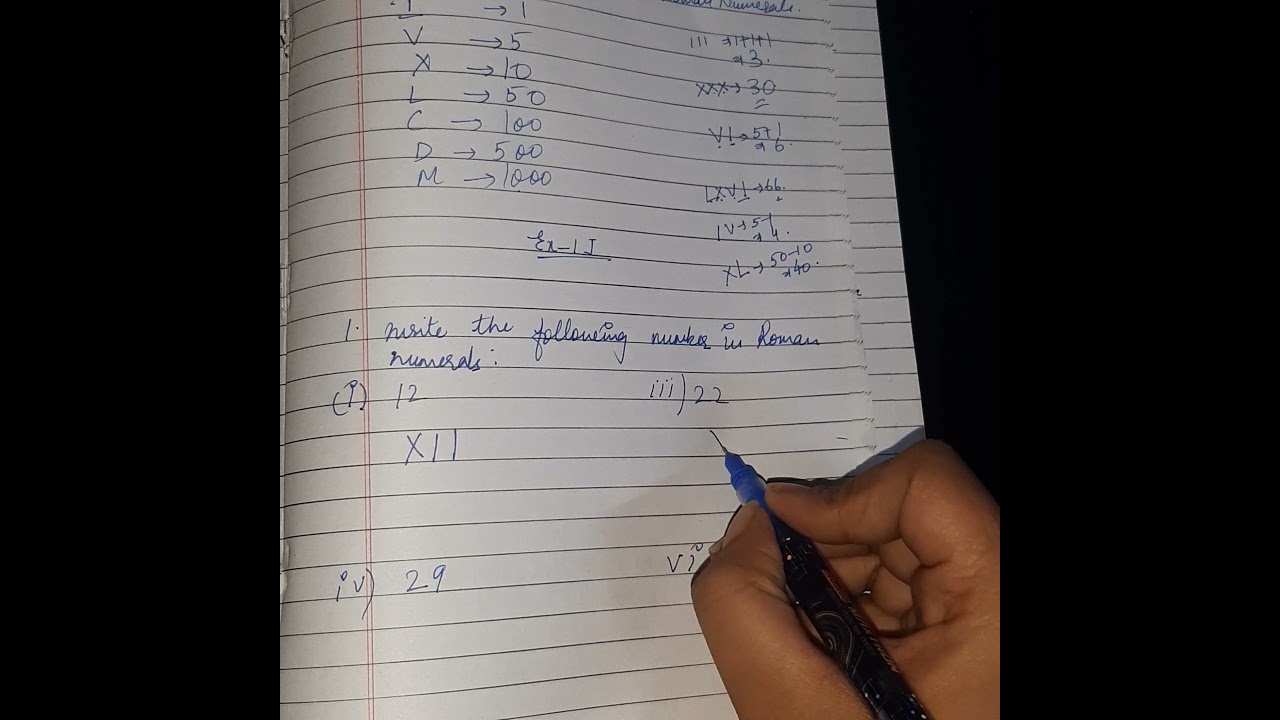 I → 1
V → 5
X → 10
L → 50
C → 100
D → 500
M → 1000
Numerals.
III → 1+1+1
→ 3.
XXX → 30
VI → 5+1
→ 6.
LXVI → 66.
IV → 5-1
→ 4.
XL → 50-10
→ 40.
Ex-1 I
1. Write the following number in Roman
numerals:
(i) 12
iii) 22
XII
iv) 29
vi